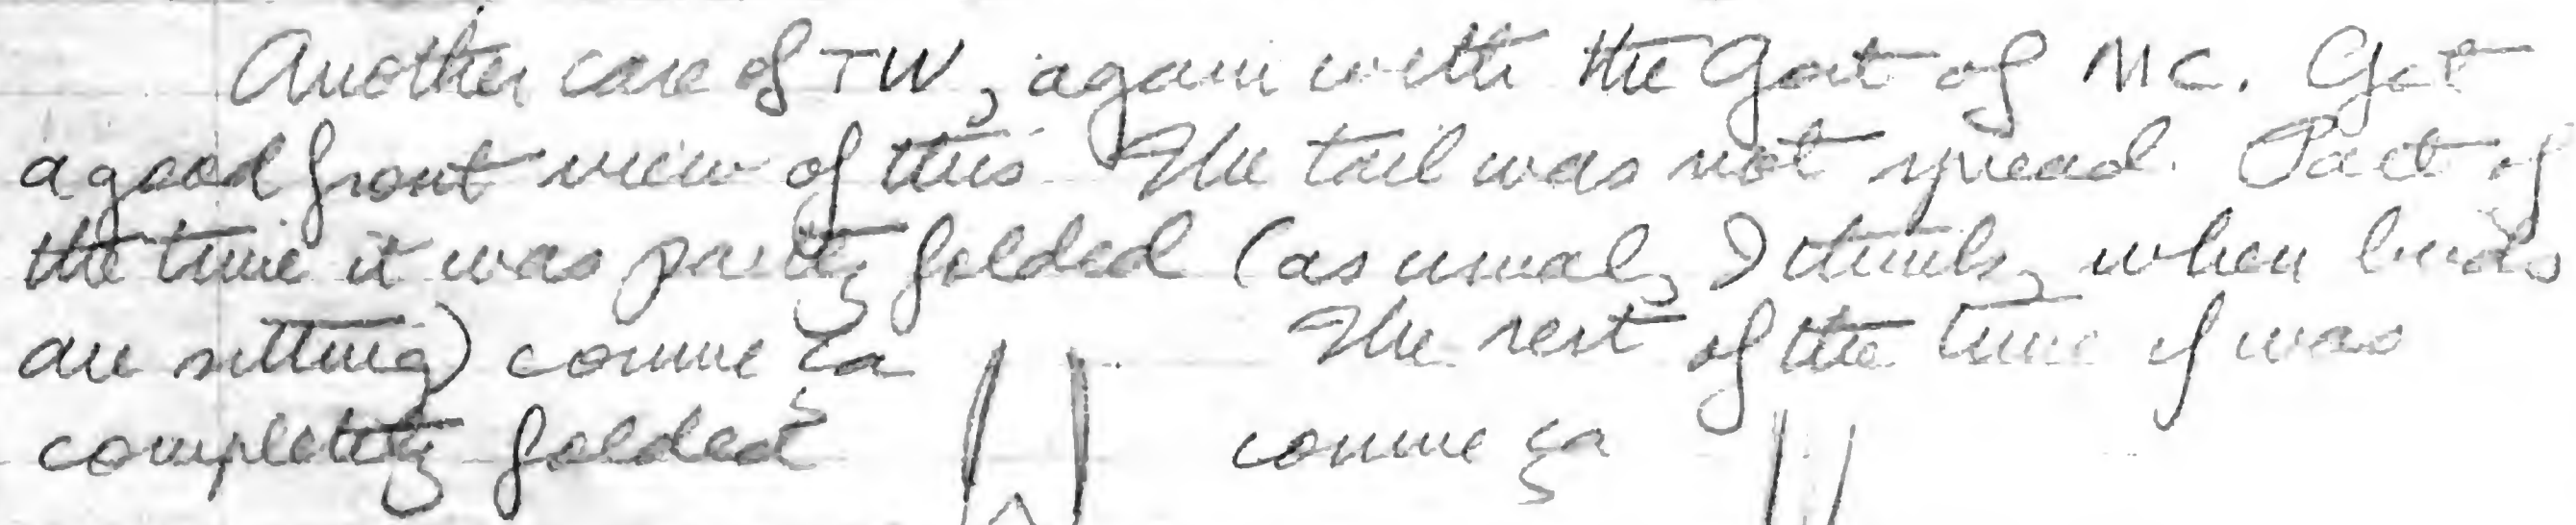 Another case of TW, again with the Goet of MC. Got
a good front view of this. The tail was not spread. Part of
the time it was partly folded (as usual, I think, when birds
are sitting) comme ça The rest of the time it was
completely folded comme ça